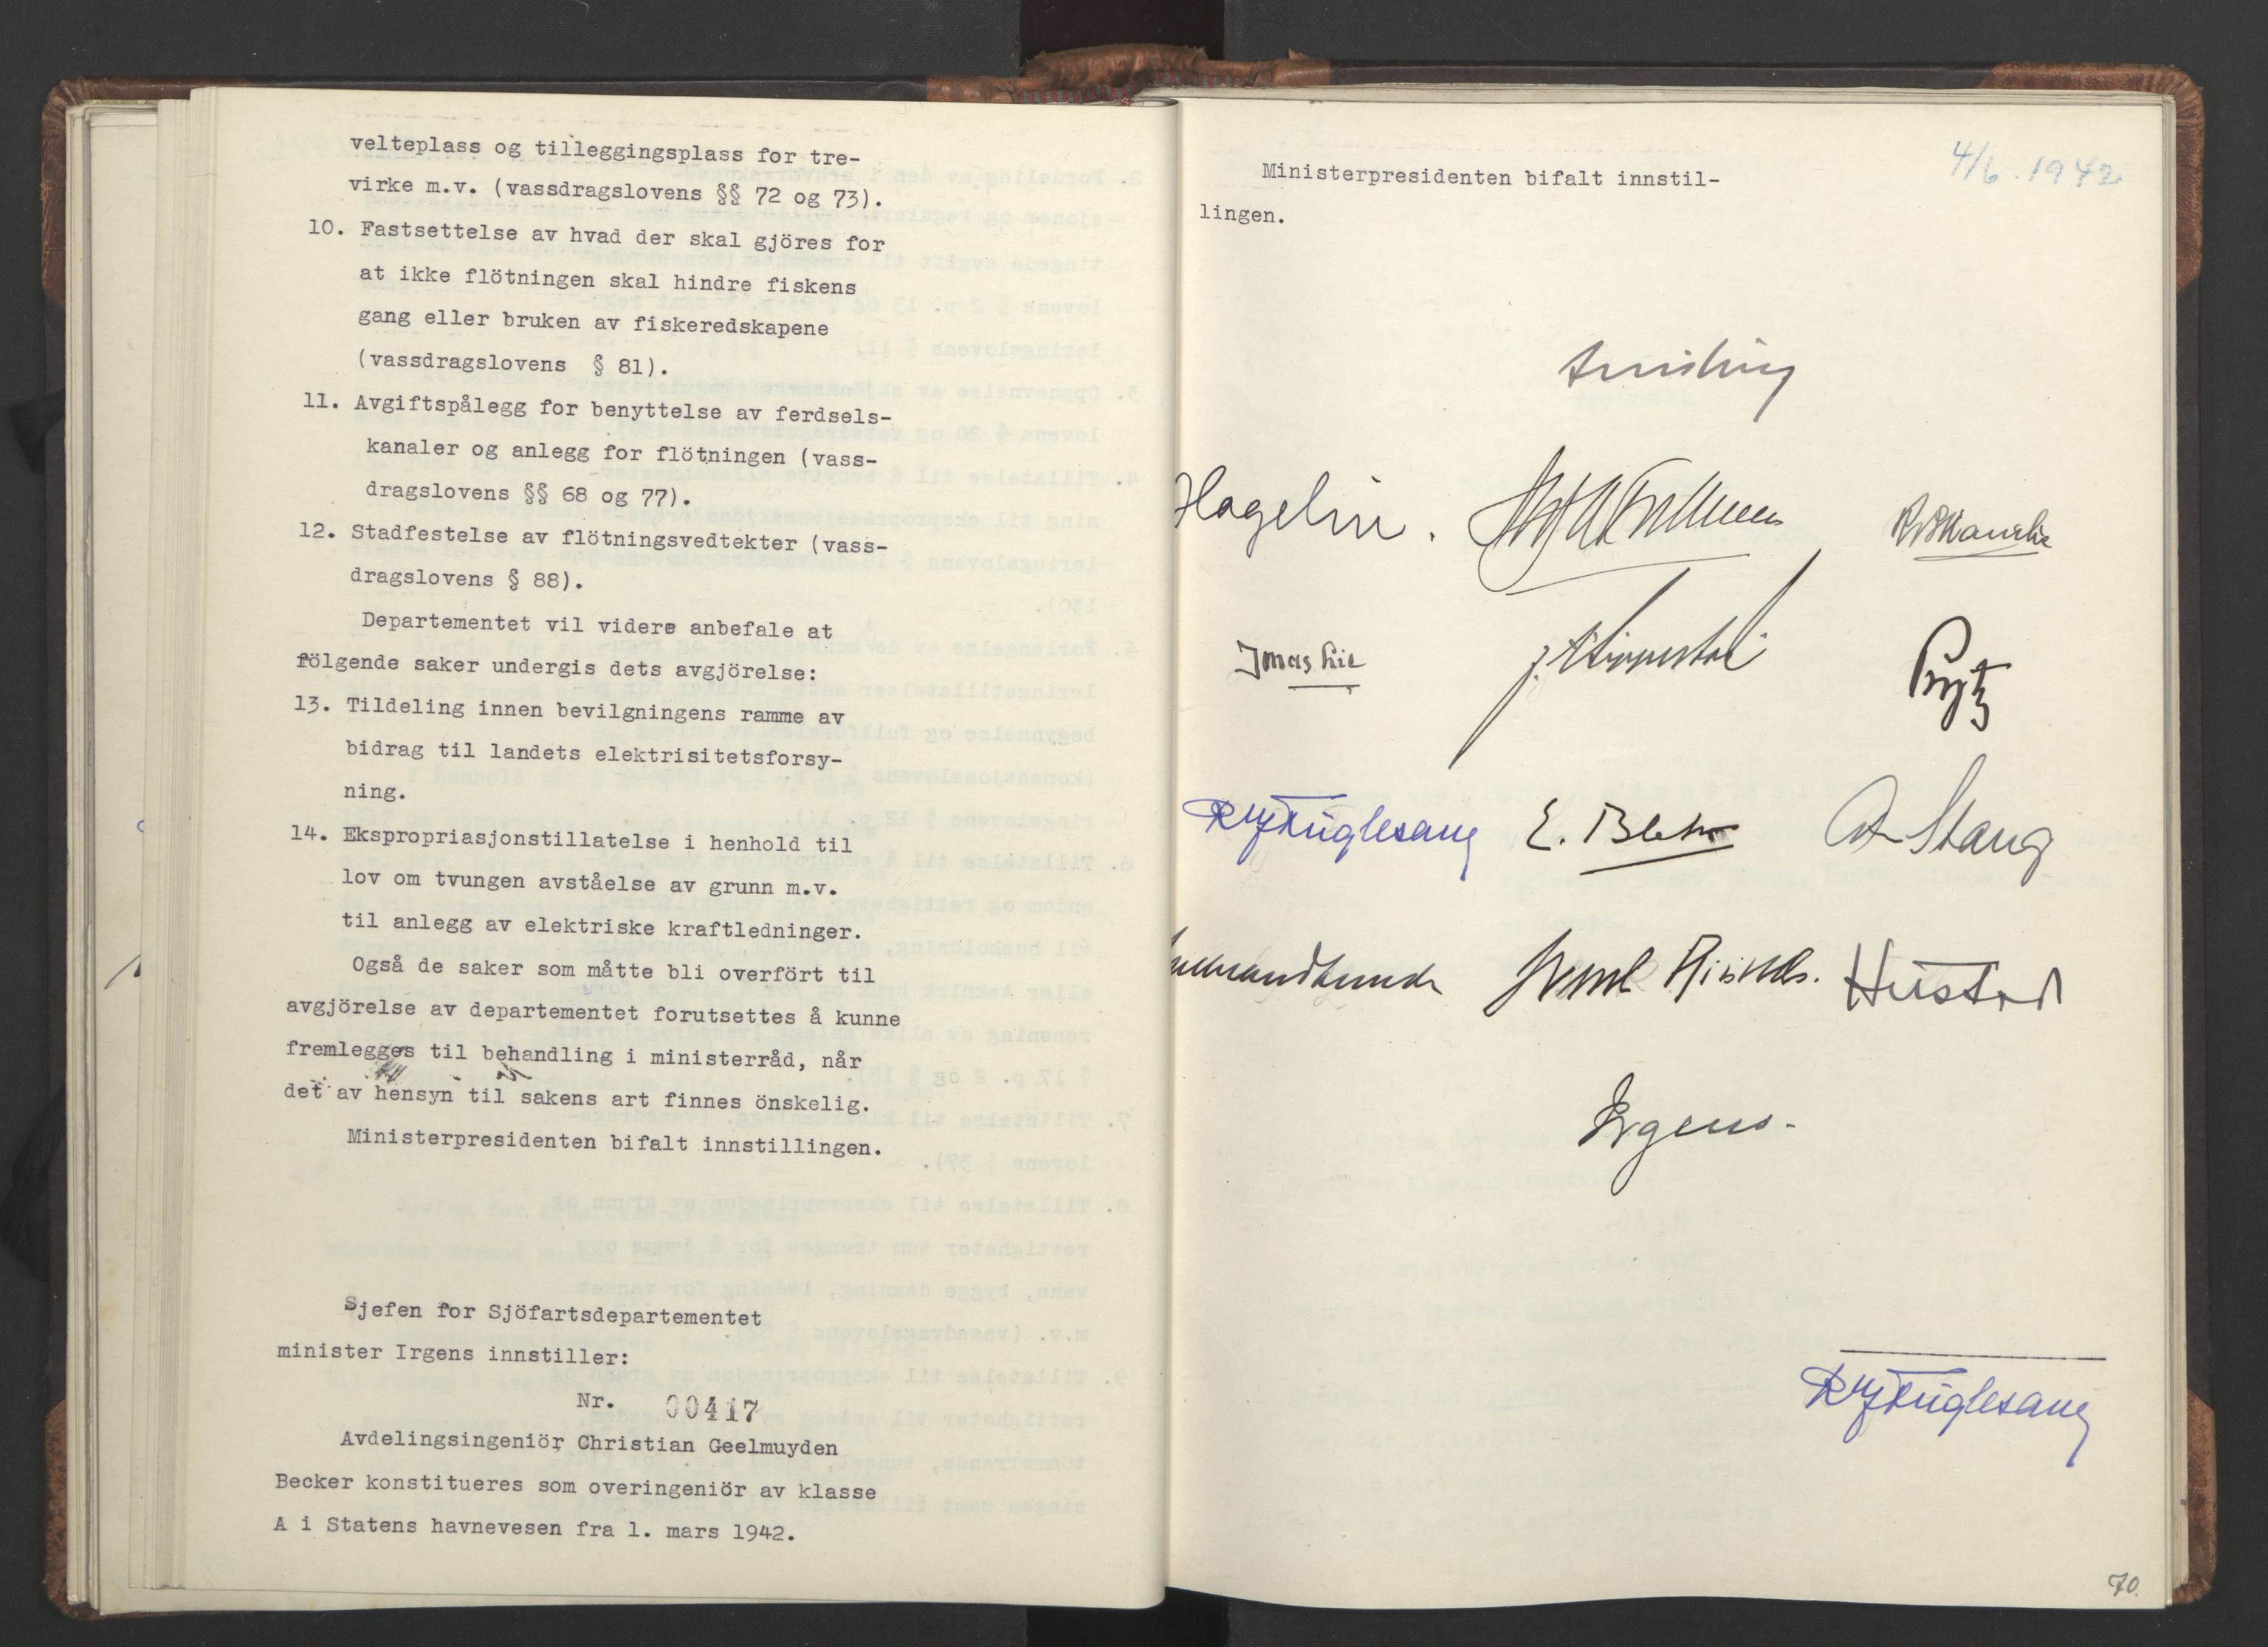 velteplass og tilleggingsplass for tre-
virke m.v. (vassdragslovens §§ 72 og 73).
10. Fastsettelse av hvad der skal gjöres for
at ikke flötningen skal hindre fiskens
gang eller bruken av fiskeredskapene
(vassdragslovens § 81).
11. Avgiftspålegg for benyttelse av ferdsels-
kanaler og anlegg for flötningen (vass-
dragslovens §§ 68 og 77).
12. Stadfestelse av flötningsvedtekter (vass-
dragslovens § 88).
Departementet vil videre anbefale at
fölgende saker undergis dets avgjörelse:
13. Tildeling innen bevilgningens ramme av
bidrag til landets elektrisitetsforsy-
ning.
14. Ekspropriasjonstillatelse i henhold til
lov om tvungen avståelse av grunn m.v.
til anlegg av elektriske kraftledninger.
Også de saker som måtte bli overfört til
avgjörelse av departementet forutsettes å kunne
fremlegges til behandling i ministerråd, når
det av hensyn til sakens art finnes önskelig.
Ministerpresidenten bifalt innstillingen.
Sjefen for Sjöfartsdepartementet
minister Irgens innstiller:
Nr. 00417
Avdelingsingeniör Christian Geelmuyden
Becker konstitueres som overingeniör av klasse
A i Statens havnevesen fra 1. mars 1942.
4/6. 1942
Ministerpresidenten bifalt innstil-
lingen.
Quisling
Hagelin. R Skancke
Jonas Lie J. Lippestad Prytz
R J Fuglesang E. Blehr A Stang
Hustad
Irgens.
R J Fuglesang
70.